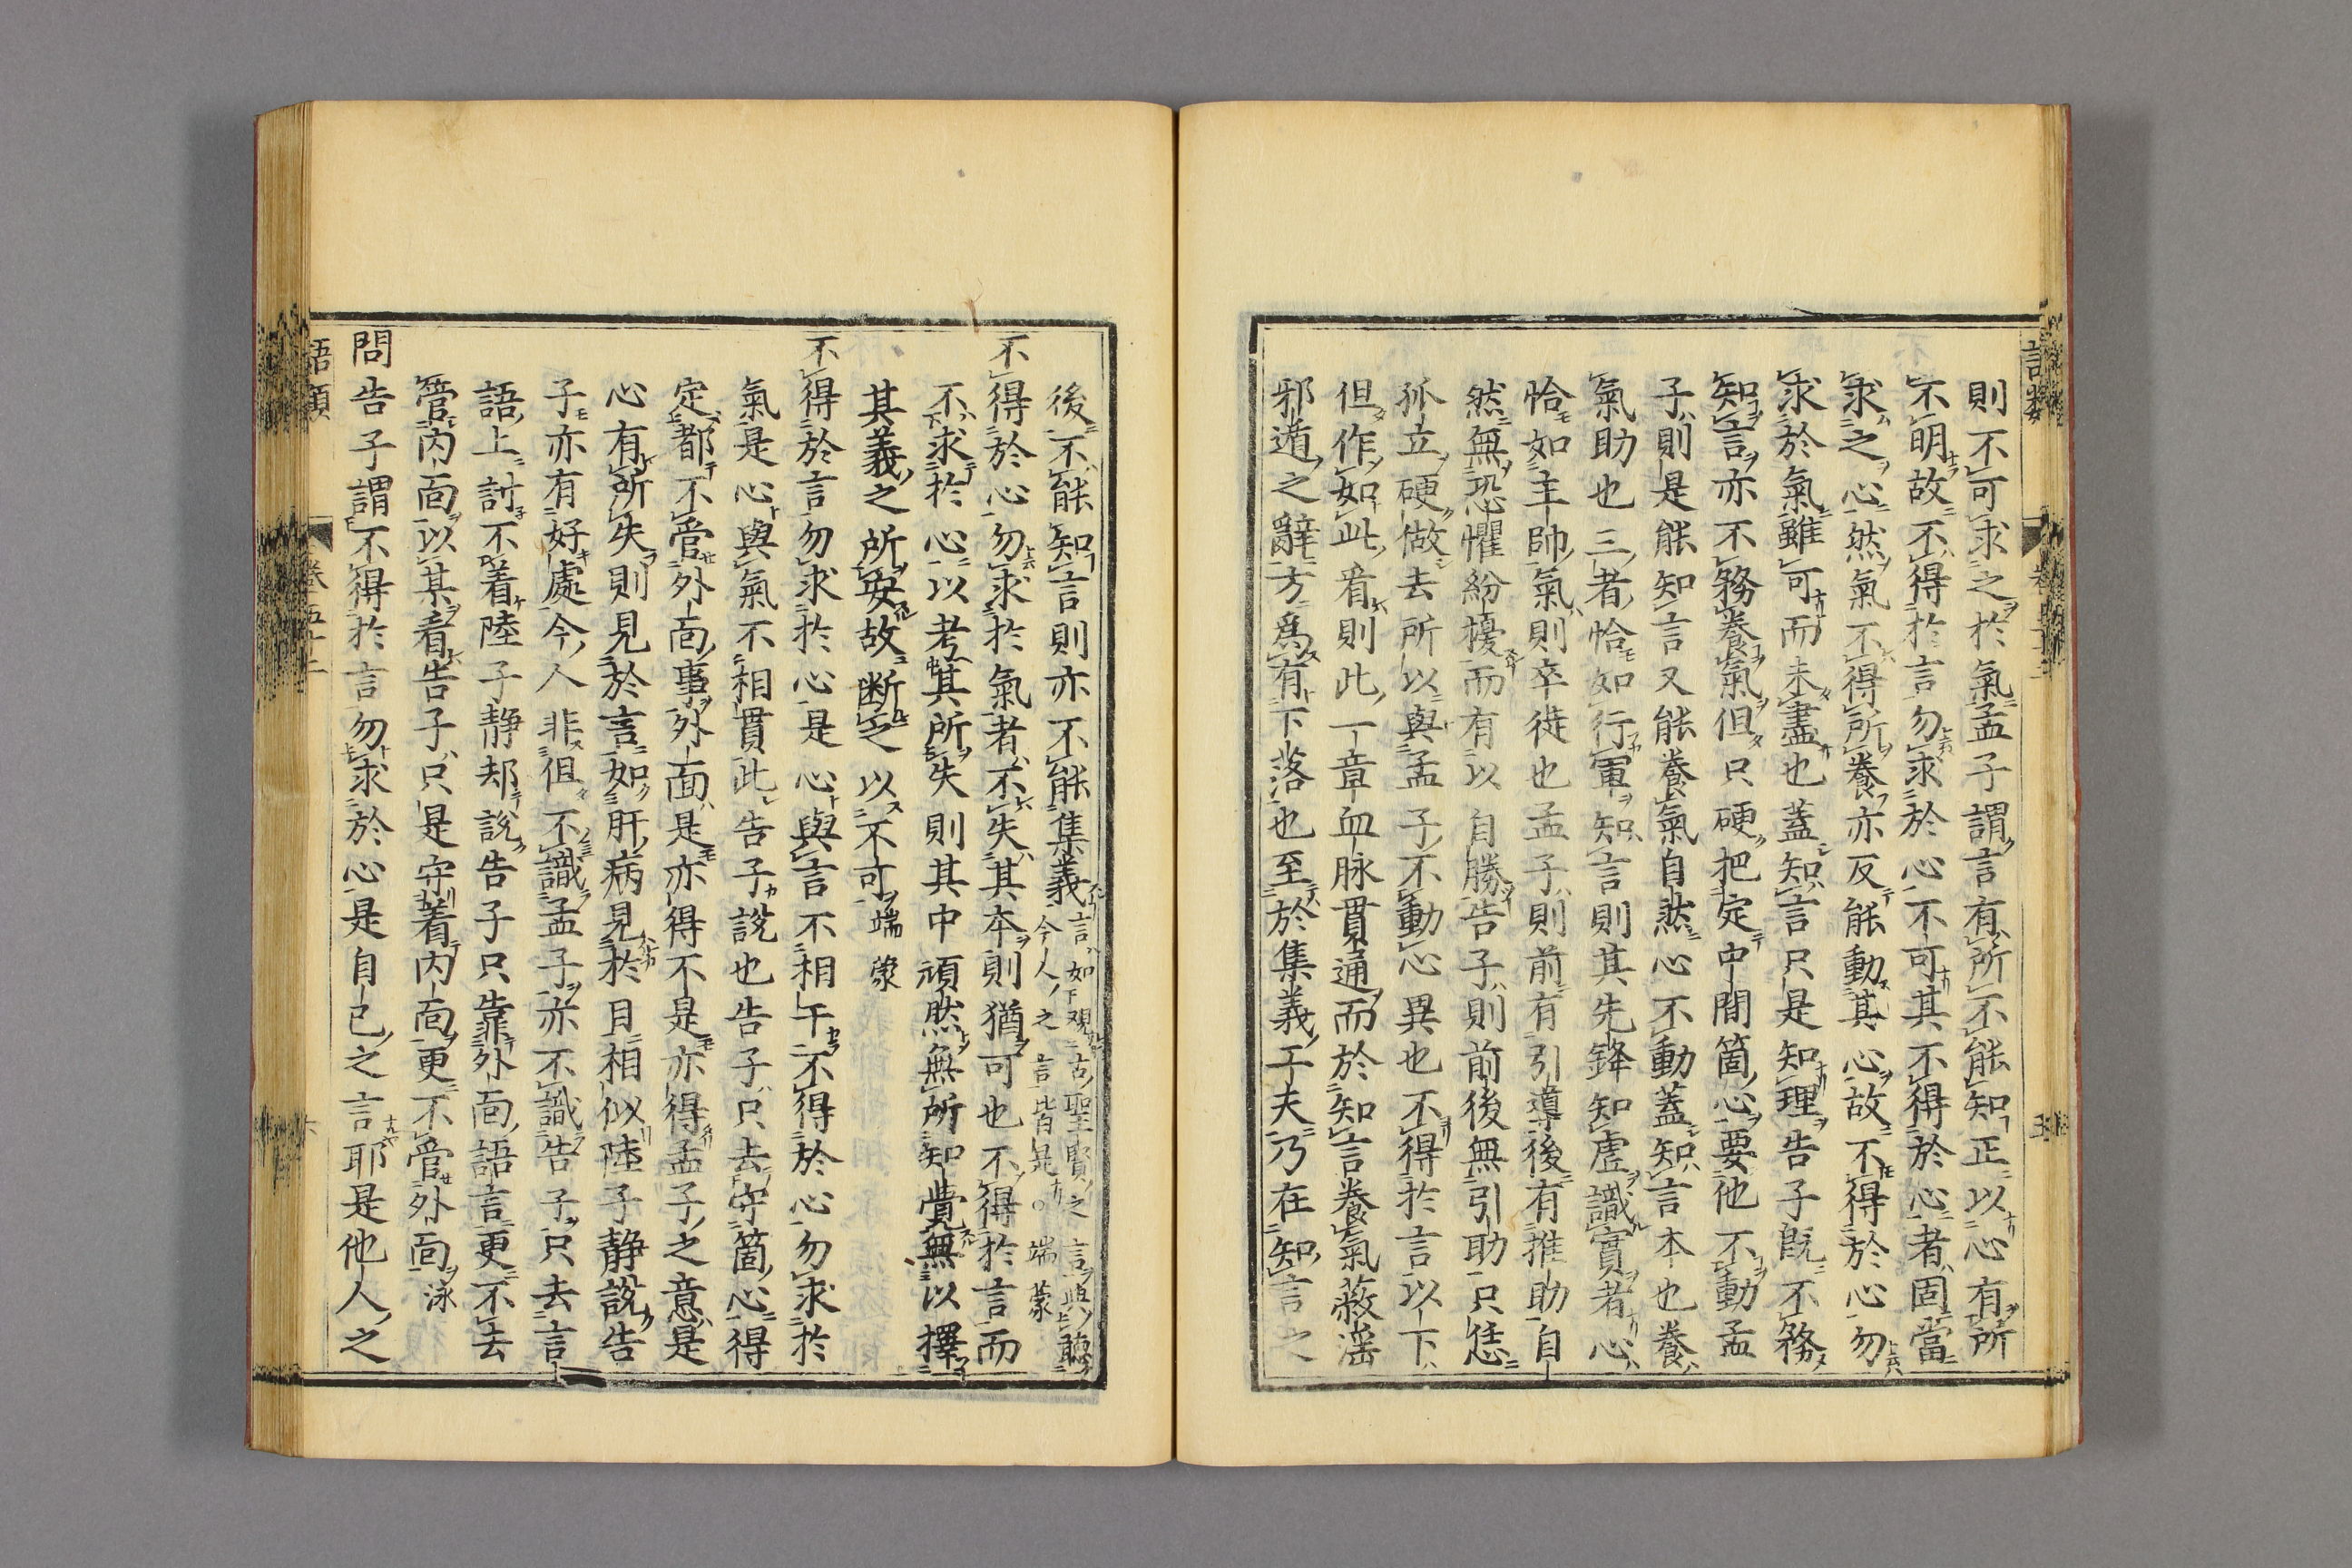 則不可求之於氣孟子謂言有所不能知正以心有所
不明故不得於言勿求於心不可其不得於心者固當
求之心然氣不得所養亦反能動其心故不得於心勿
求於氣雖可而未盡也蓋知言只是知理告子既不務
知言亦不務養氣但只硬把定中間箇心要他不動孟
子則是能知言又能養氣自然心不動蓋知言本也養
氣助也三者恰如行軍知言則其先鋒知虛識實者心
恰如主帥氣則卒徒也孟子則前有引導後有推助自
然無恐懼紛擾而有以自勝告子則前後無引助只恁
孤立硬做去所以與孟子不動心異也不得於言以下
但作如此看則此一章血脉貫通而於知言養氣詖淫
邪遁之辭方爲有下落也至於集義工夫乃在知言之
後不能知言則亦不能集義言如觀古聖賢之言與聽
今人之言皆是○端蒙
不得於心勿求於氣者不失其本則猶可也不得於言而
不求於心以考其所失則其中頑然無所知覺無以擇
其義之所安故斷之以不可端蒙
不得於言勿求於心是心與言不相干不得於心勿求於
氣是心與氣不相貫此告子說也告子只去守箇心得
定都不管外面事外面是亦得不是亦得孟子之意是
心有所失則見於言如肝病見於目相似陸子靜說告
子亦有好處今人非但不識孟子亦不識告子只去言
語上討不着陸子靜却說告子只靠外面語言更不去
管内面以某看告子只是守着内面更不管外面泳
問告子謂不得於言勿求於心是自己之言耶是他人之
語類
卷五十二
六